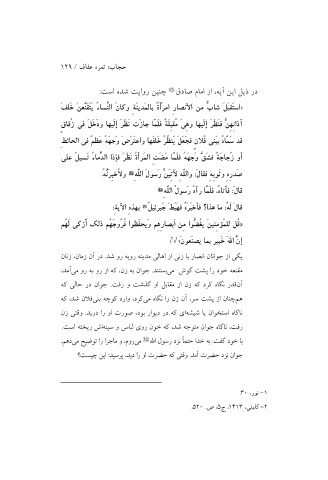 حجاب؛ ثمره عفاف / ۱۲۹
در ذیل این آیه، از امام صادق چنین روایت شده است:
«استَقبَلَ شابٌّ مِنَ الأنصارِ امرَأةً بِالمَدینَةِ وَکانَ النِّساءُ یَتَقَنَّعنَ خَلفَ
آذانِهِنَّ فَنَظَرَ إلَیها وهِیَ مُقبِلَةٌ فَلَمّا جازَت نَظَرَ إلَیها ودَخَلَ فی زُقاقٍ
قد سَمّاهُ بِبَنی فُلانٍ فَجَعَلَ یَنظُرُ خَلفَها وَاعتَرَضَ وَجهَهُ عَظمٌ فی الحائِطِ
أو زُجاجَةٌ فَشَقَّ وَجهَهُ فَلَمّا مَضَتِ المَرأةُ نَظَرَ فَإذَا الدِّماءُ تَسیلُ عَلی
صَدرِهِ وثَوبِهِ فقالَ: وَاللّهِ لآتِیَنَّ رَسولَ اللّهِ ولاُخبِرَنَّهُ.
قالَ: فَأتاهُ، فَلَمّا رَآهُ رَسولُ اللّهِ
قالَ لَهُ: ما هذا؟ فَأخبَرَهُ فَهَبَطَ جَبرَئیلُ بِهذِهِ الآیَةِ:
«قُل لِلمُؤمِنینَ یَغُضّوا مِن أبصارِهِم ویَحفَظُوا فُروجَهُم ذلِکَ أزکی لَهُم
إنَّ اللّهَ خَبیرٌ بِما یَصنَعونَ؛۱»۲
یکی از جوانان انصار با زنی از اهالی مدینه روبه رو شد. در آن زمان، زنان
مقنعه خود را پشت گوش می‌بستند. جوان به زن، که از رو به رو می‌آمد،
آن‌قدر نگاه کرد که زن از مقابل او گذشت و رفت. جوان در حالی که
هم‌چنان از پشت سر، آن زن را نگاه می‌کرد، وارد کوچه بنی‌فلان شد، که
ناگاه استخوان یا شیشه‌ای که در دیوار بود، صورت او را درید. وقتی زن
رفت، ناگاه جوان متوجه شد، که خون روی لباس و سینه‌اش ریخته است.
با خود گفت: به خدا حتماً نزد رسول الله می‌روم، و ماجرا را توضیح می‌دهم.
جوان نزد حضرت آمد. وقتی که حضرت او را دید، پرسید: این چیست؟
۱- نور، ۳۰.
۲- کلینی، ۱۴۱۳، ج۵، ص. ۵۲۰.